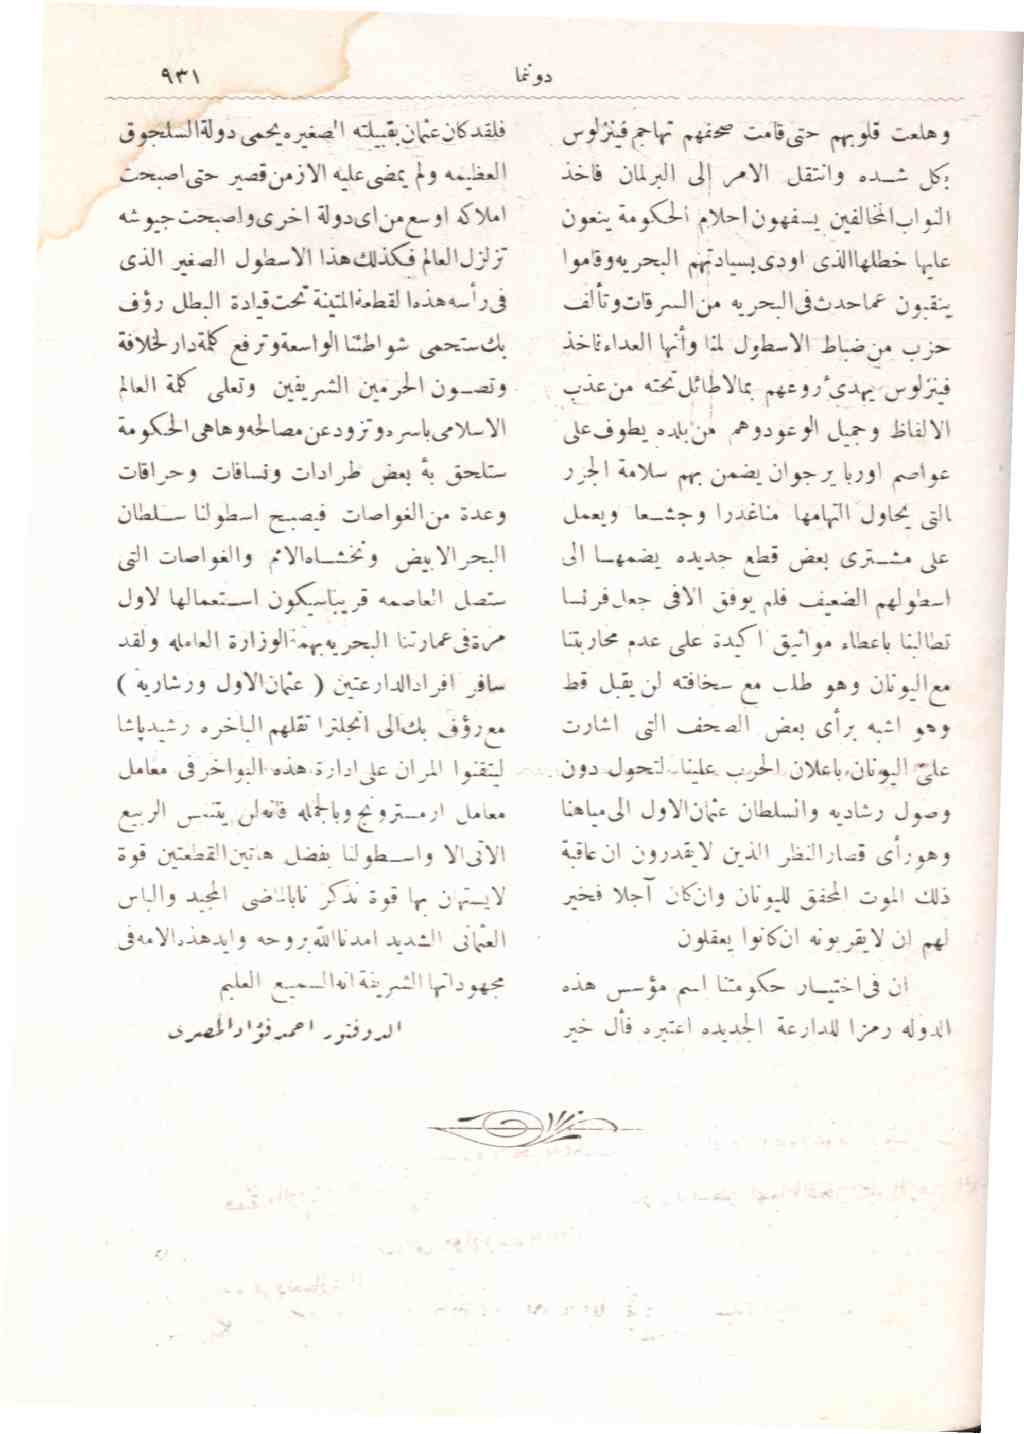 دونما
٩٣١
وهلعت قلوبهم حتى قامت صحفهم تهاجم فينزلوس
بكل شده وانتقل الامر إلى البرلمان فاخذ
النواب المخالفين يسفهون احلام الحكومة ينعون
عليها خطلها الذى اودى بسيادتهم البحريه وقاموا
ينقبون عما حدث فى البحريه من السرقات وتألف
حزب من ضباط الاسطول لمنا وأنها العداء فاخذ
فينزلوس يهدىء روعهم بما لاطائل تحته من عذب
الالفاظ وجميل الوعود وهم من بلده يطوف على
عواصم اوربا يرجو ان يضمن بهم سلامة الجزر
التى يحاول التهامها مناغدرا وجشعا ويعمل
على مشترى بعض قطع جديده يضمها الى
اسطولهم الضعيف فلم يوفق الا فى جعل فرنسا
تطالبنا باعطاء مواثيق اكيدة على عدم محاربتنا
مع اليونان وهو طلب مع سخافته لن يقبل قط
وهو اشبه برأى بعض الصحف التى اشارت
على اليونان باعلان الحرب علينا لتحول دون
وصول رشاديه والسلطان عثمان الاول الى مياهنا
وهو رأى قصار النظر الذين لا يقدرون ان عاقبة
ذلك الموت المحقق لليونان وان كان آجلا فخير
لهم ان لا يقربونه ان كانوا يعقلون
ان فى اختيار حكومتنا اسم مؤسس هذه
الدوله رمزا للدارعة الجديده اعتبره فأل خير
فلقد كان عثمان بقبيلته الصغيره يحمى دولة السلجوق
العظيمه ولم يمضى عليه الا زمن قصير حتى اصبحت
املاكه اوسع من اى دولة اخرى واصبحت جيوشه
تزلزل العالم فكذلك هذا الاسطول الصغير الذى
فى رأسه هذه القطعة المتينة تحت قيادة البطل رؤف
بك ستحمى شواطئنا الواسعة وترفع كلمة دار الخلافة
وتصون الحرمين الشريفين وتعلى كلمة العالم
الاسلامى باسره وتزود عن مصالحه وهاهى الحكومة
ستلحق به بعض طرادات ونسافات وحراقات
وعدة من الغواصات فيصبح اسطولنا سلطان
البحر الابيض وتخشاه الامم والغواصات التى
ستصل العاصمه قريبا سيكون استعمالها لاول
مرة فى عمارتنا البحريه بهمة الوزارة العامله ولقد
سافر افراد الدارعتين ( عثمان الاول ورشاريه )
مع رؤف بك الى انجلترا تقلهم الباخره رشيد پاشا
ليتقنوا المران على ادارة هذه البواخر فى معامل
معامل ارمسترونج وبالجمله فانه لن يتنفس الربيع
الاتى الا واسطولنا بفضل هاتين القطعتين قوة
لايستهان بها قوة تذكرنا بالماضى المجيد والباس
العثمانى الشديد امدنا الله بروحه وايد هذه الامه فى
مجهوداتها الشريفة انه السميع العليم
الدوقتور احمد فؤاد المصرى